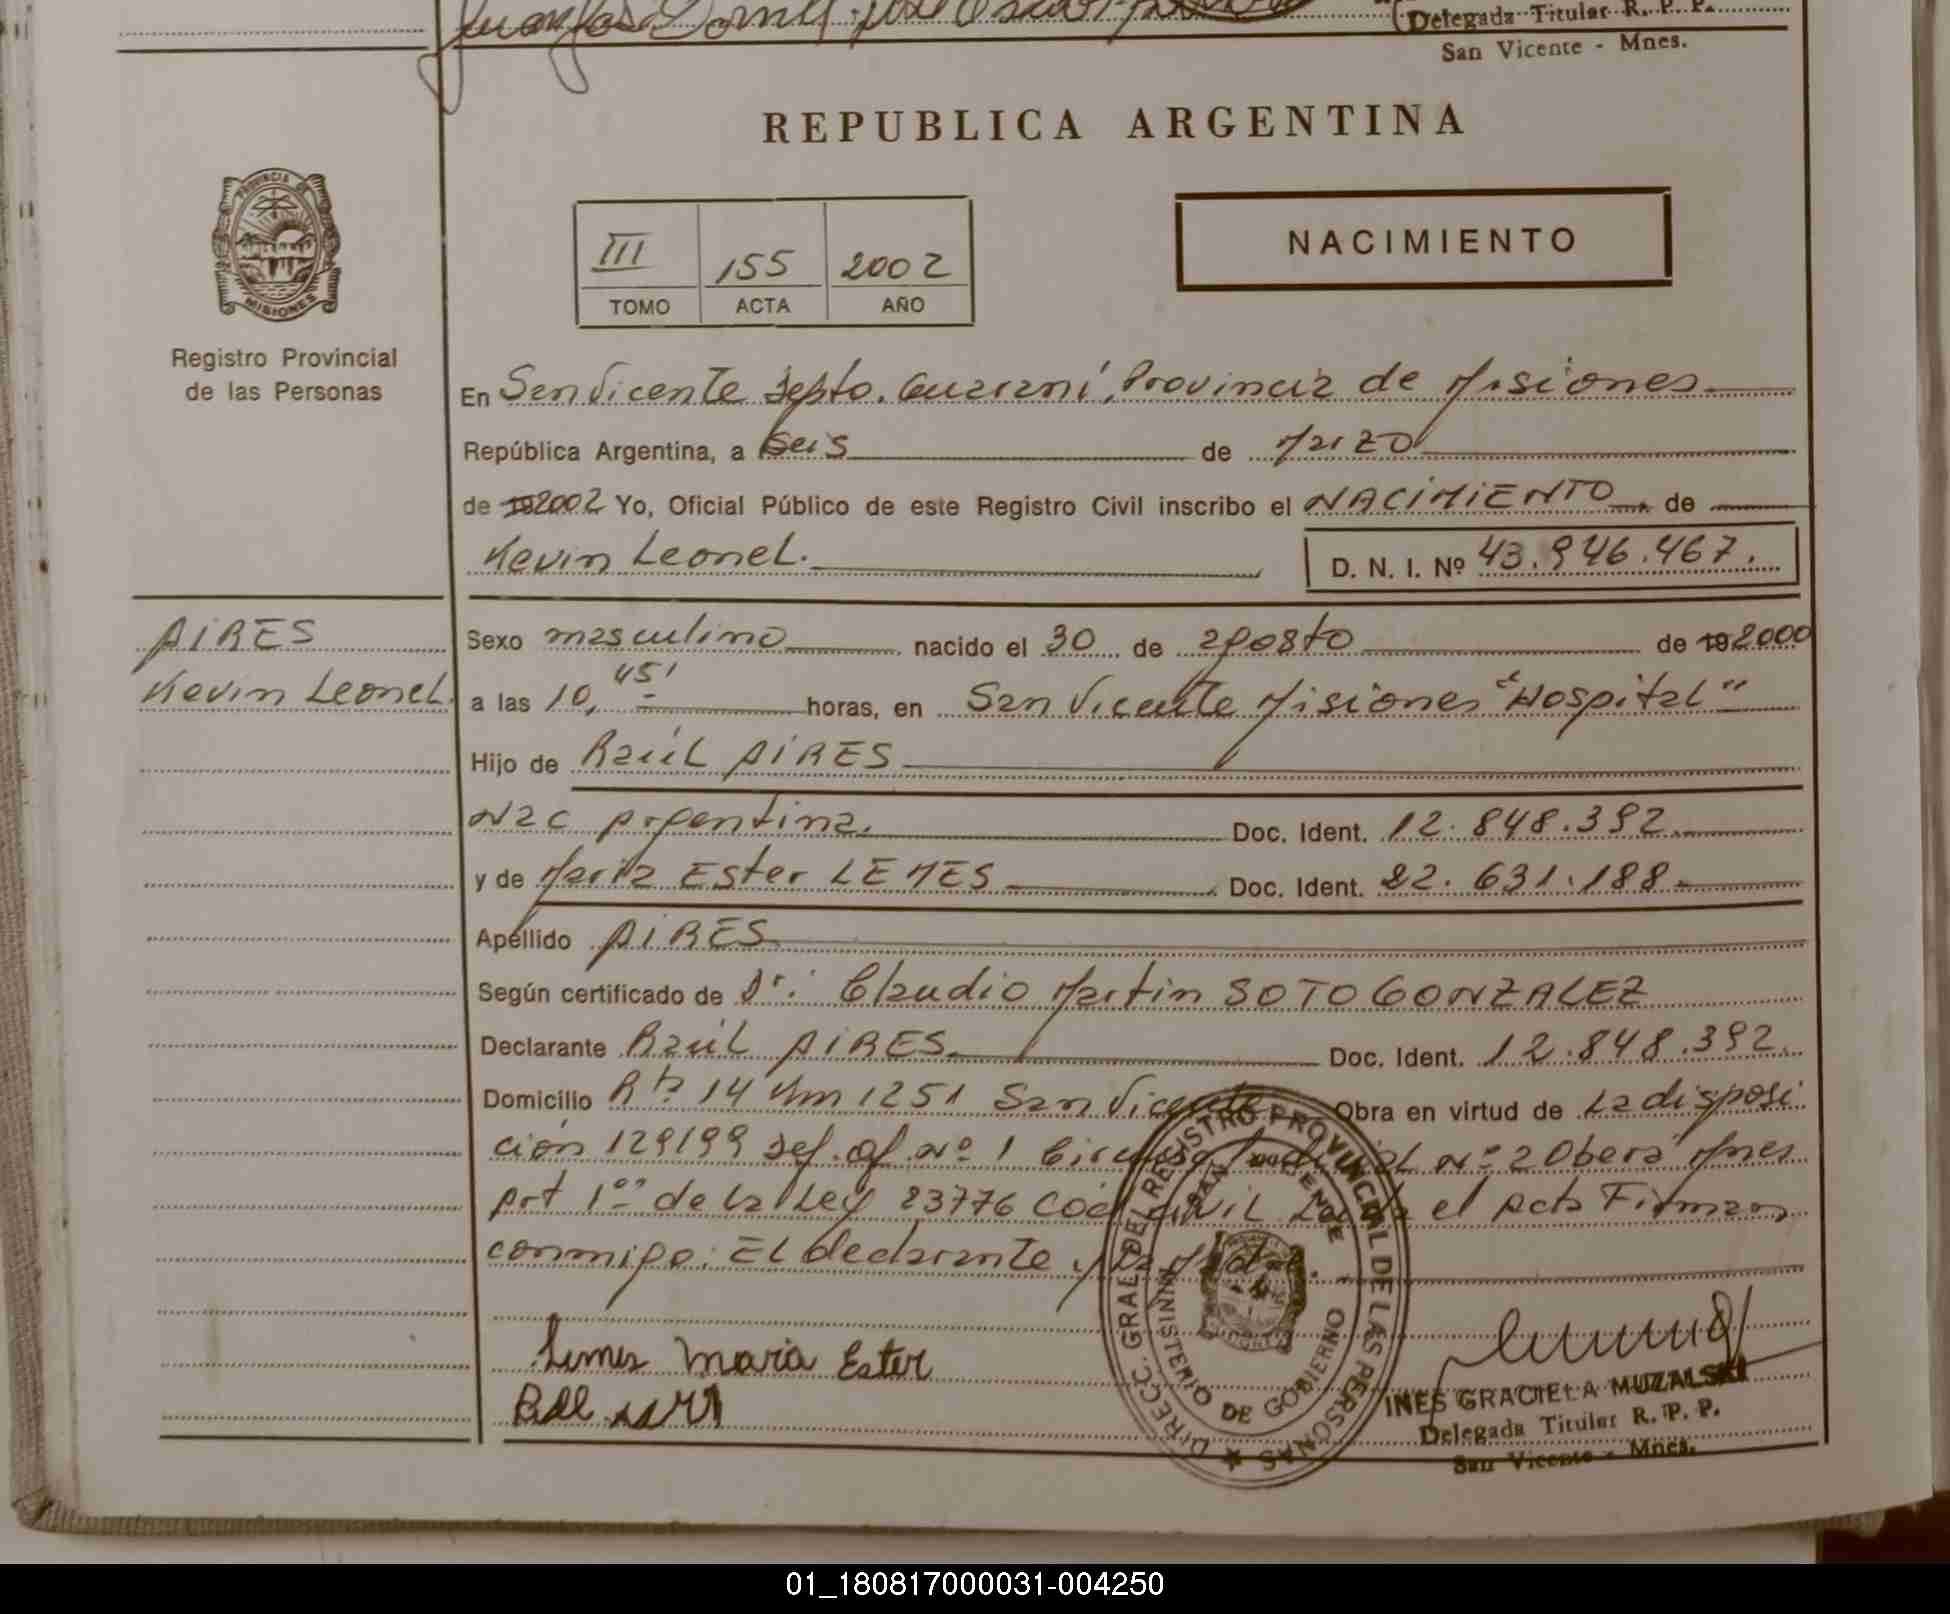 Delegada Titular R. P. P.
San Vicente - Mnes.
REPUBLICA ARGENTINA
PROVINCIA DE
MISIONES
Registro Provincial
de las Personas
III 155 2002
TOMO ACTA AÑO
NACIMIENTO
En San Vicente Depto. Guaraní, Provincia de Misiones
República Argentina, a seis de Marzo
de 192002 Yo, Oficial Público de este Registro Civil inscribo el NACIMIENTO de
Kevin Leonel. D. N. I. Nº 43.946.467.
AIRES
Kevin Leonel.
Sexo masculino nacido el 30 de agosto de 192000
a las 10,45' horas, en San Vicente Misiones "Hospital"
Hijo de Raúl AIRES
Nac Argentina. Doc. Ident. 12.848.392
y de María Ester LEMES Doc. Ident. 22.631.188
Apellido AIRES
Según certificado de Dr: Claudio Martin SOTO GONZALEZ
Declarante Raúl AIRES Doc. Ident. 12.848.392.
Domicilio Rta 14 Km 1251 San Vicente Obra en virtud de La disposi
ción 129/99 Def. of. Nº 1 Judicial Nº 2 Oberá Mnes
Art 1º de la Ley 23776 Cód Civil Leída el Acta Firman
conmigo: EL declarante y La Madre.
Lemes Maria Ester
DIRECC. GRAL DEL REGISTRO PROVINCIAL DE LAS PERSONAS
SAN VICENTE
MINISTERIO DE GOBIERNO
INES GRACIELA MUZALSKI
Delegada Titular R. P. P.
San Vicente - Mnes.
01_180817000031-004250